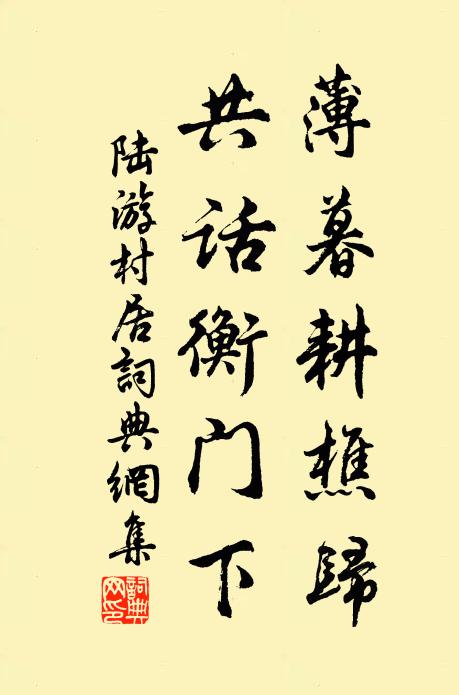 薄暮耕樵歸
共话衡门下
陆游村居詞典網集
詞典网印